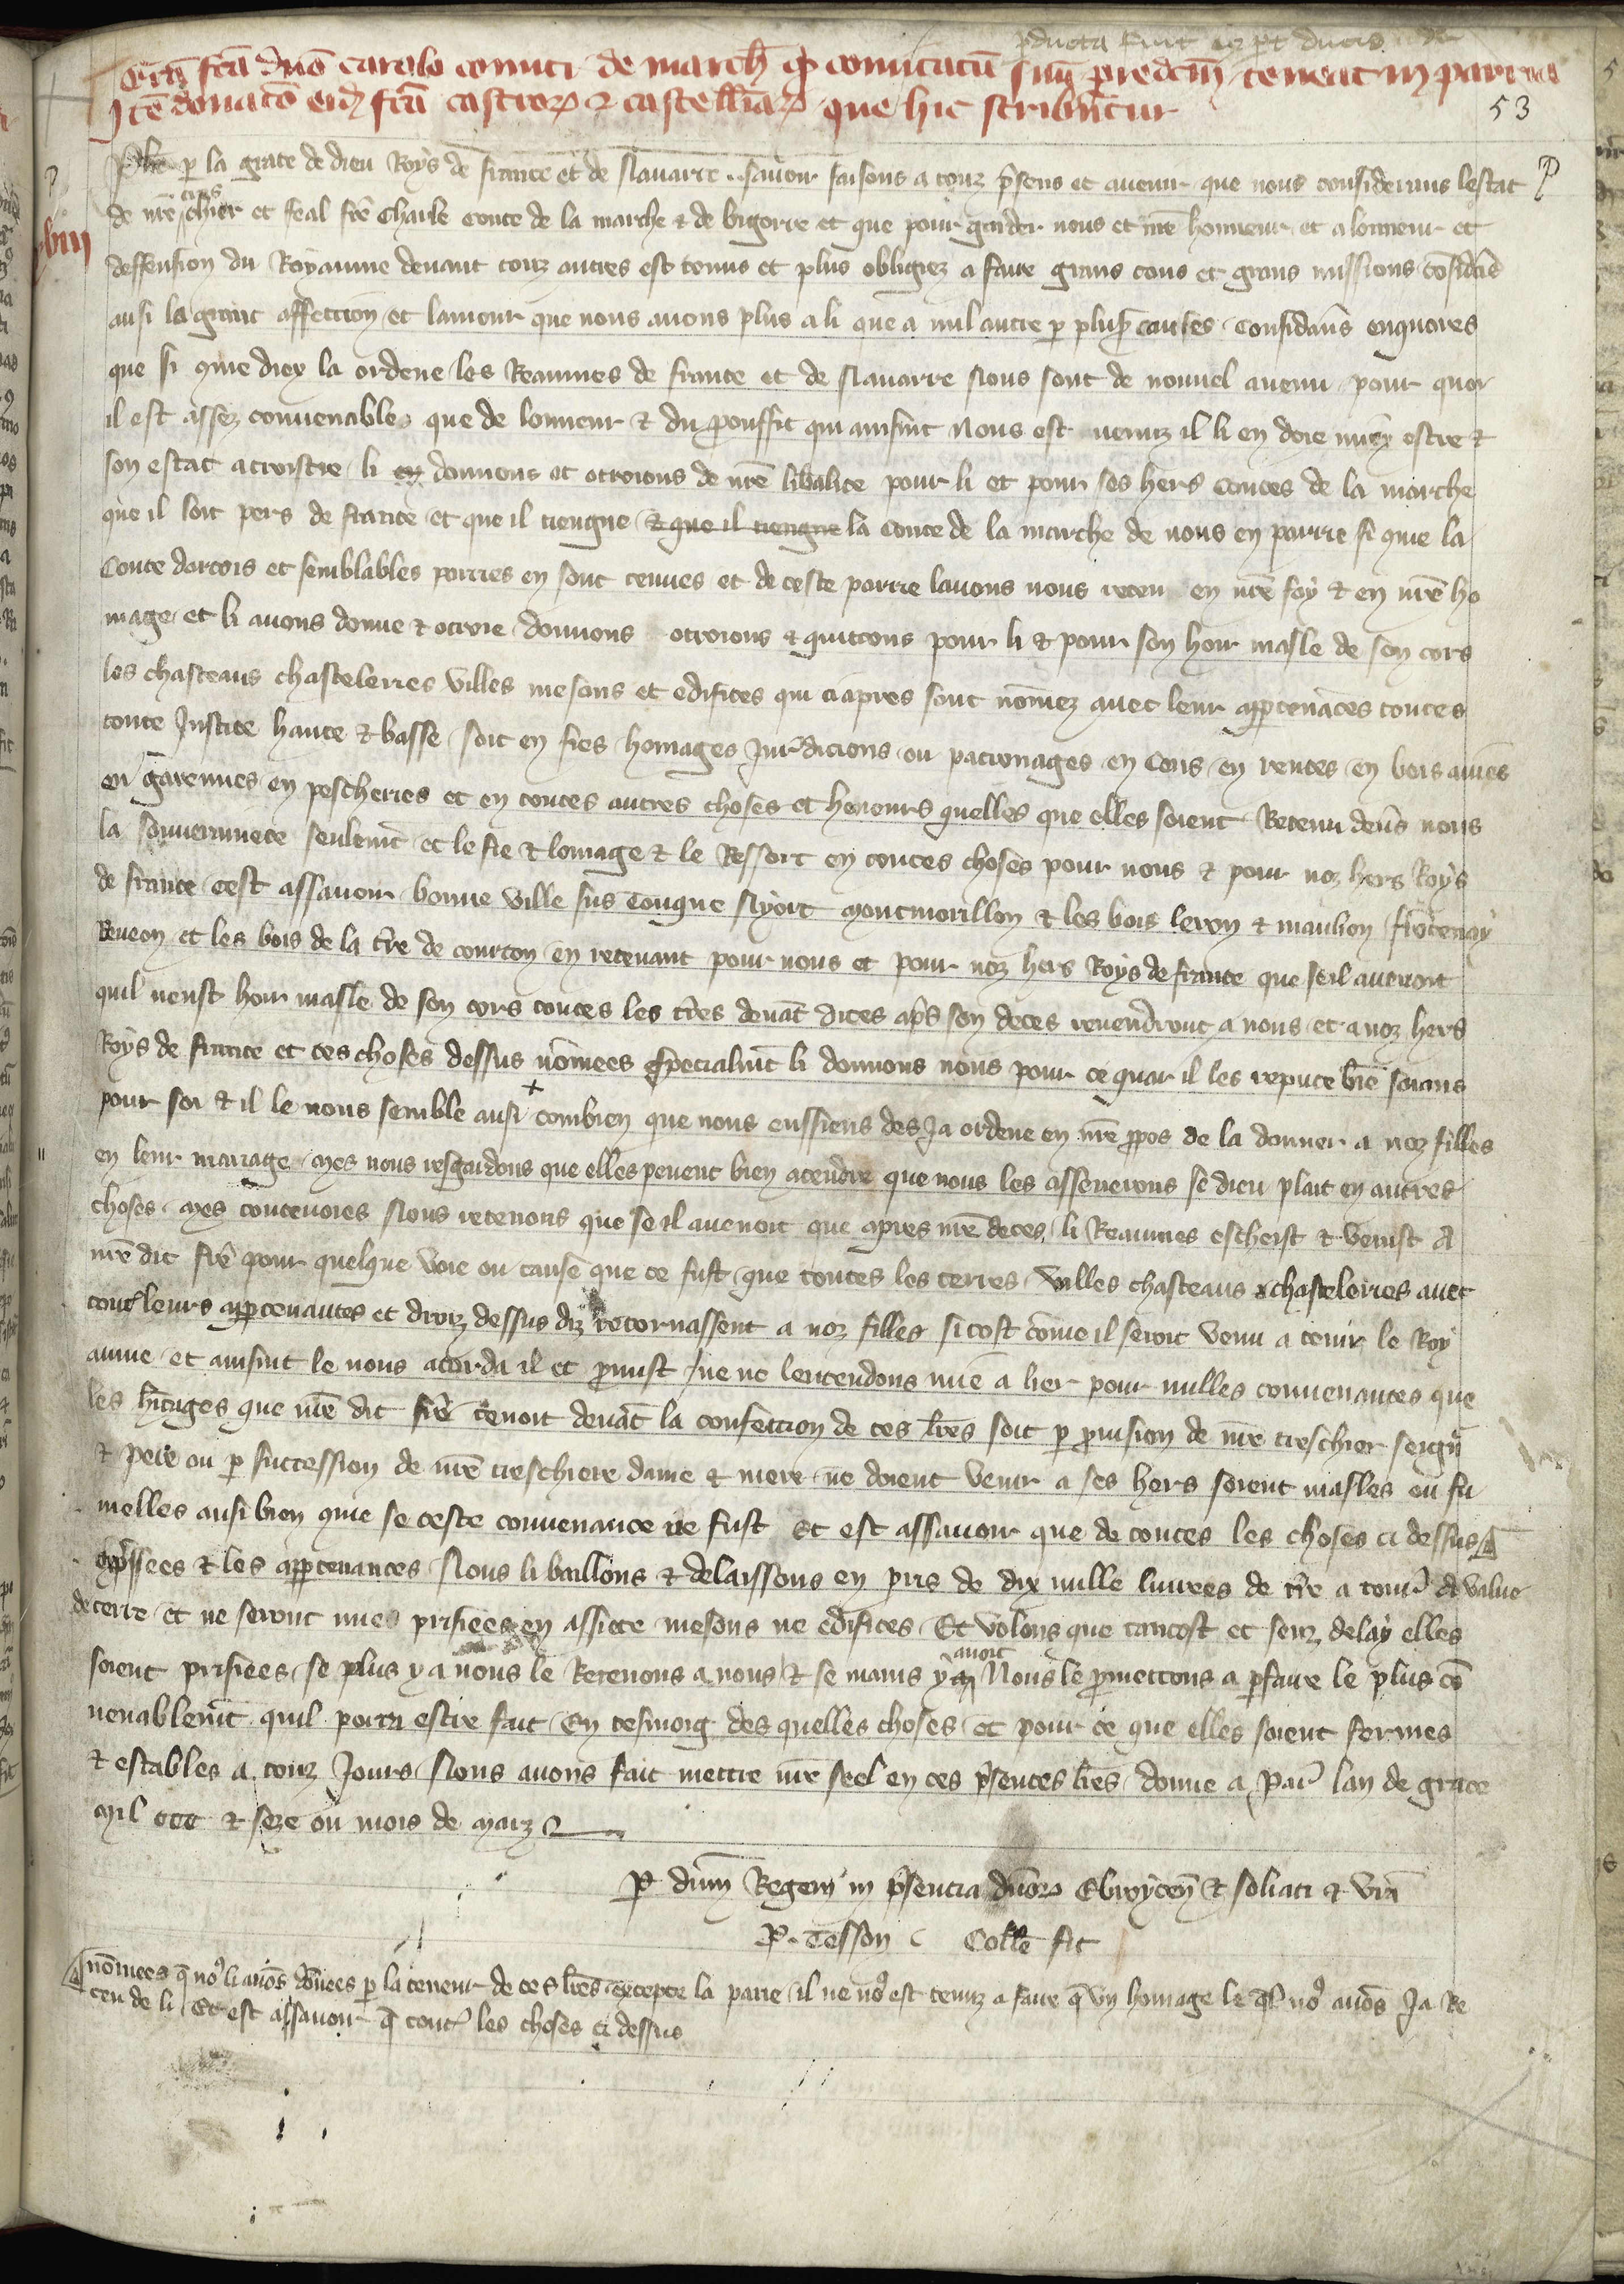 producta fuit ex parte ducis
Gra facta dno Karolo comiti de march q comitatu suu predcm teneat in parria
Ite donato eid facta castror et castelliar que hic scribuntur
53
Phe p la grace de dieu Roys de france et de Nauarre savoir faisons a touz psens et avenir que nous considerans lestat
de nre tres chier et feal fre Charle Conte de la marche et de bigorre et que pour garder nous et nre honneur et a lonneur et
deffension du Royaume devant touz autres est tenus et plus obligiez a faire grans cous et grans missions Considans
ausi la grant affection et lamour que nous avons plus a li que a nul autre p plus causes Considans enquores
que si que diex la ordene les Reaumes de france et de Navarre Nous sont de nouvel avenu pour quoi
il est assez convenables que de lonneur et du prouffit qui ainsint Nous est venuz il li en doie miex estre et
son estat acroistre li en donnons et otroions de nre libalite pour li et pour ses hers Contes de la marche
que il soit pers de france et que il tiengne et que il tiengne la Conte de la marche de nous en parrie si que la
Conte dartois et semblables parries en sont tenues et de ceste parrie lavons nous receu en nre foy et en nre ho
mage et li avons donne et otroie donnons otroions et quittons pour li et pour son hoir masle de son cors
les chasteaus chasteleries villes mesons et edifices qui ci apres sont nomez avec leur apptenaces toutes
toute Justice haute et basse soit en fies homages Juridicions ou patronages en Cens en rentes en bois
en garennes en pescheries et en toutes autres choses et honeurs quelles que elles soient Retenu devs nous
la souverainete seulemt et le fie et lomage et le Ressort en toutes choses pour nous et pour noz hers Roys
de france cest assavoir bonne ville sus Touque Nyort Montmorillon et les bois leron et mauleon frotenay
Beueon et les bois de la tre de courcon en retenant pour nous et pour noz hers Roys de france que se il avenoit
quil neust hoir masle de son cors toutes les tres devat dites aps son deces revendront a nous et a noz hers
Roys de france et ces choses dessus nomees especialmt li donnons nous pour ce quar il les repute bie seans
pour soi et il le nous semble ausi combien que nous eussiens des Ja ordene en nre ppos de la donner a noz filles
en leur mariage Mes nous resgardons que elles pevent bien atendre que nous les assenerons se dieu plait en autres
choses Mes toutevoies Nous retenons que se il avenoit que apres nre deces li Reaumes escheist et venist A
nre dit fre pour quelque voie ou cause que ce fust que toutes les terres villes chasteaus et chasteleries avec
tout leurs apptenances et droiz dessus diz retornassent a noz filles si tost come il seroit venu a tenir le Roy
aume et ainsint le nous acorda il et pmist Ne ne lentendons mie a lier pour nulles convenances que
les hitages que nre dit fre tenoit devat la confection de ces lres soit p pvision de nre treschier seign
et pere ou p succession de nre treschiere dame et mere ne doient venir a ses hers soient masles ou fu
melles ausi bien que se ceste convenance ne fust Et est assavoir que de toutes les choses ci dessus
expssees et les apptenances Nous li baillons et delaissons en pris de dix mille livrees de tre a tour A value
de terre et ne seront mie prisiees en assiete mesons ne edifices Et volons que tantost et senz delay elles
soient prisiees se plus y a nous le Retenons a nous et se mains y avoit Nous le pmettons a pfaire le plus co
nenablemt quil porra estre fait En tesmoig des quelles choses et pour ce que elles soient fermes
et estables a touz Jours Nous avons fait mettre nre seel en ces psentes lres donne a Par lan de grace
Mil CCC et seze ou mois de Marz
P dnm Regem in psencia dnor Ebroycen et soliaci et vra
P. Tesson Colle fit
nomees q no li avos donees p la teneur de ces lres excepte la parie il ne no est tenuz a faire q un homage le ql no avos Ja Re
ceu de li Et est assavoir q tout les choses ci dessus